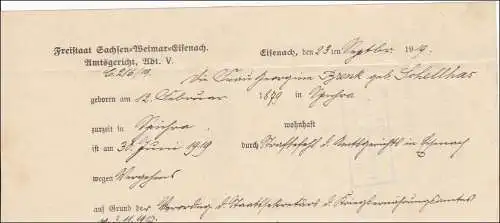 Freistaat Sachsen-Weimar-Eisenach.
Amtsgericht, Abt. V.
Eisenach, den 23 ten Septbr. 1919.
Die Frau Georgine Brenk geb. Schellhas
geboren am 12. Februar 1879 in Spichra
zurzeit in Spichra wohnhaft
ist am 30. Juni 1919 durch Strafbefehl d. Amtsgerichts in Eisenach
wegen Vergehens
auf Grund der Verordng d. Staatssekretärs d. Kriegsernährungsamtes